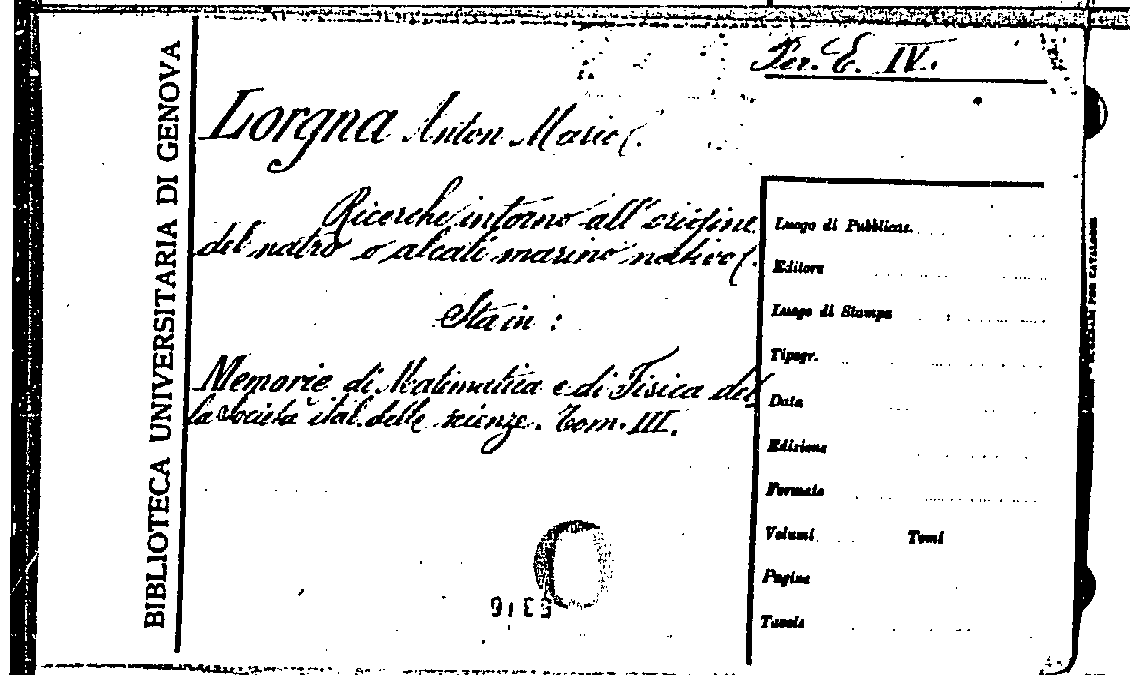 Per. E. IV.
BIBLIOTECA UNIVERSITARIA DI GENOVA
Lorgna Anton Mario(.
Ricerche intorno all'origine
del natro o alcali marino nativo(.
Sta in :
Memorie di Matimatica e di Fisica del
la Società ital. delle scienze. Tom. III.
Luogo di Pubblicaz.
Editore
Luogo di Stampa
Tipogr.
Data
Edizione
Formato
Volumi Tomi
Pagine
Tavole